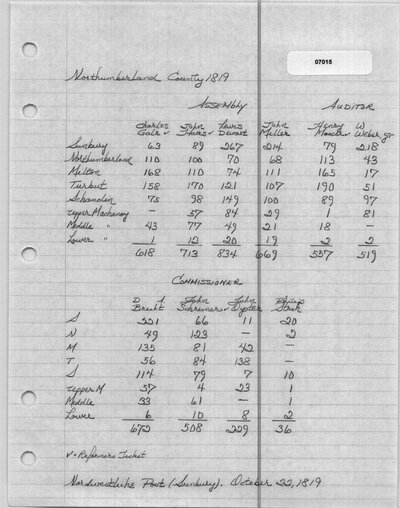 07015
Northumberland County 1819
ASSEMBLY AUDITOR
Charles John Lewis John Henry W
Gale ✓ Shares ✓ Dewart Miller Weber, Jr
Sunbury 63 89 267 214 79 218
Northumberland 110 100 70 68 113 43
Milton 168 110 74 111 165 17
Turbut 158 170 121 107 190 51
Schamokin 75 98 149 100 89 97
Upper Machanoy — 57 84 29 1 81
Middle " 43 77 49 21 18 —
Lower " 1 12 20 19 2 2
618 713 834 669 557 519
COMMISSIONER
D John John Philip
Schreiner ✓
S 221 66 11 20
N 49 123 — 2
M 135 81 42 —
T 56 84 138 —
S 114 79 7 10
Upper M 57 4 23 1
Middle 33 61 — 1
Lower 6 10 8 2
672 508 229 36
✓ = Reformers Ticket
Nordwestliche Post (Sunbury). October 22, 1819